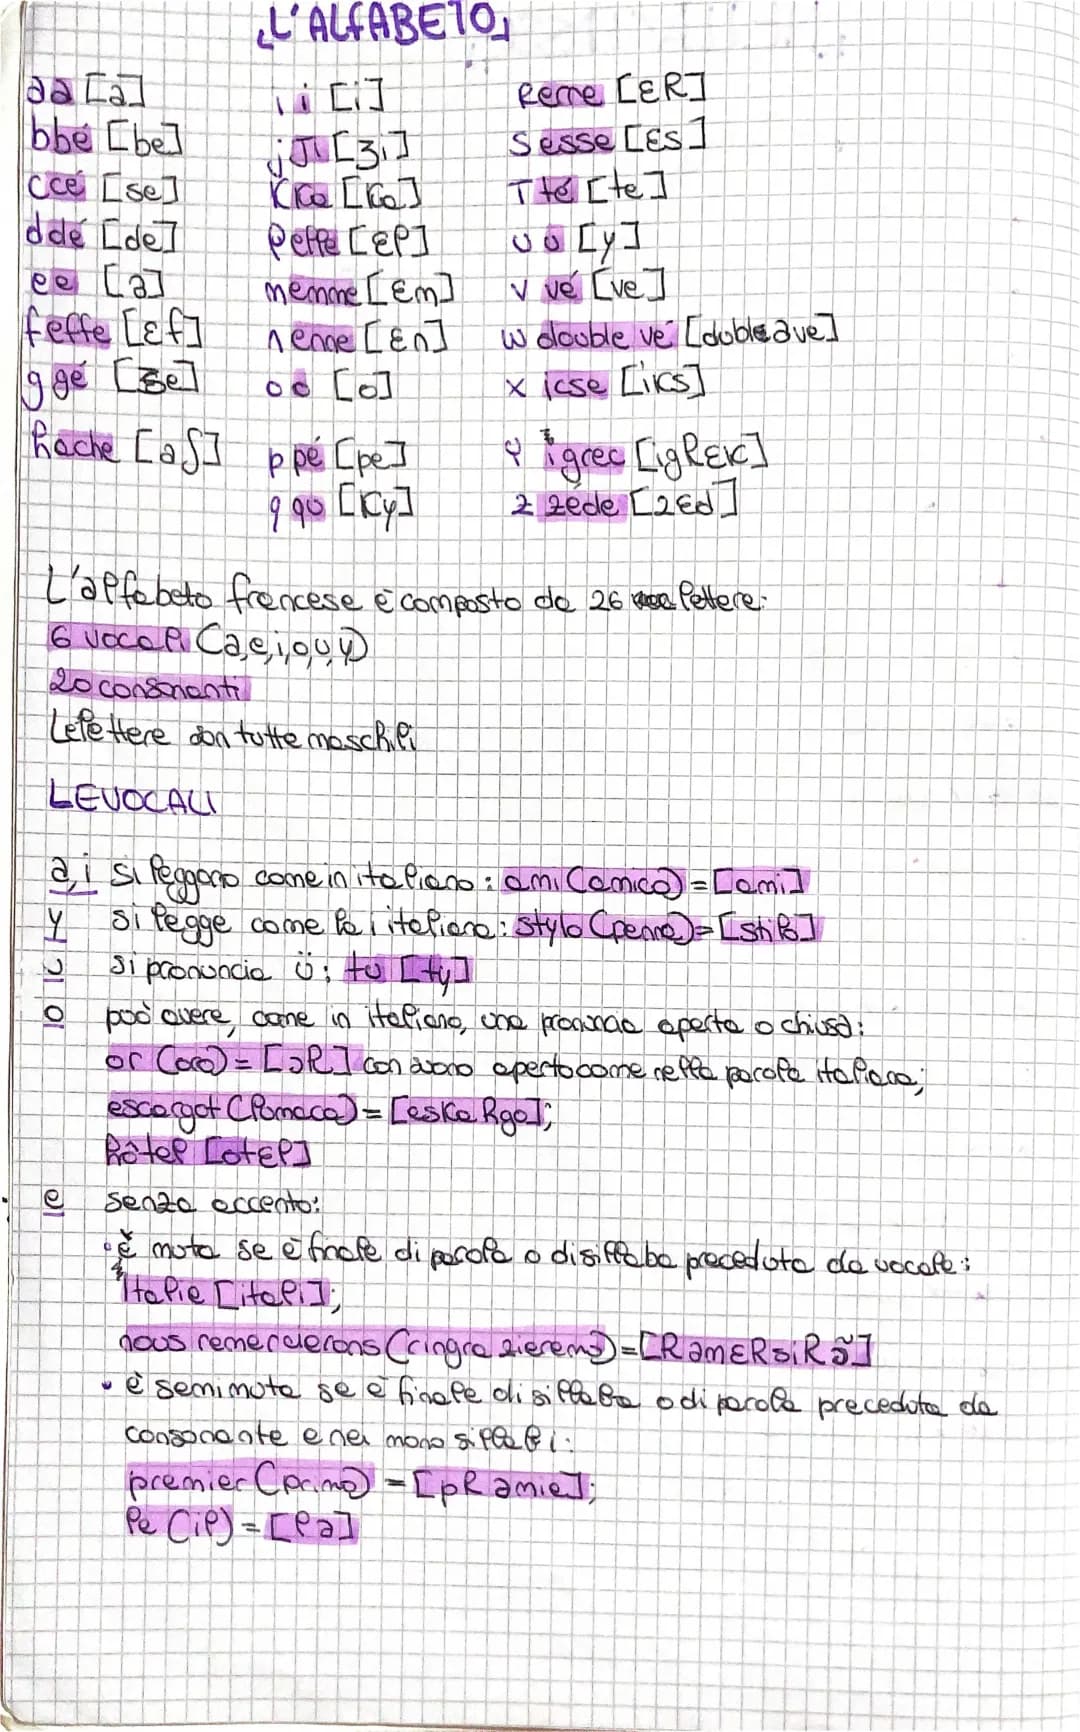 L'ALFABETO
a a [a]
b bé [be]
c cé [se]
d dé [de]
e e [ə]
f effe [ɛf]
g gé [ʒe]
h ache [aʃ]
i i [i]
j Ji [ʒi]
K Ka [Ka]
l elle [ɛl]
m emme [ɛm]
n enne [ɛn]
o o [o]
p pé [pe]
q qu [Ky]
R erre [ɛR]
S esse [ɛs]
T té [te]
u u [y]
v vé [ve]
w double vé [dubləve]
x icse [iKs]
y igrec [igRɛK]
z zède [zɛd]
L'alfabeto francese è composto da 26 lettere:
6 vocali (a,e,i,o,u,y)
20 consonanti
Le lettere son tutte maschili
LE VOCALI
a,i si leggono come in italiano: ami (amico) = [ami]
y si legge come la i italiana: stylo (penna) = [stilo]
u si pronuncia ü; tu [ty]
o può avere, come in italiano, una pronuncia aperta o chiusa:
or (oro) = [ɔR] con suono aperto come nella parola italiana;
escargot (lumaca) = [eskaRgo];
hôtel [otɛl]
e senza accento:
• è muta se è finale di parola o di sillaba preceduta da vocale:
Italie [itali];
nous remercierons (ringrazieremo) = [RəmɛRsiRɔ̃]
• è semimuta se è finale di sillaba o di parola preceduta da
consonante e nei monosillabi:
premier (primo) = [pRəmie];
le (il) = [lə]